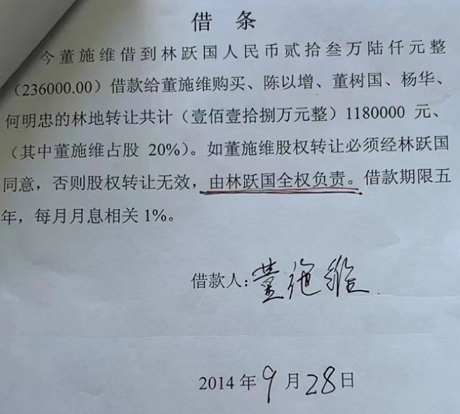 借 条
今董施维借到林跃国人民币贰拾叁万陆仟元整
（236000.00）借款给董施维购买、陈以增、董树国、杨华、
何明忠的林地转让共计（壹佰壹拾捌万元整）1180000 元、
（其中董施维占股 20%）。如董施维股权转让必须经林跃国
同意，否则股权转让无效，由林跃国全权负责。借款期限五
年，每月月息相关 1%。
借款人：董施维
2014 年 9 月 28 日